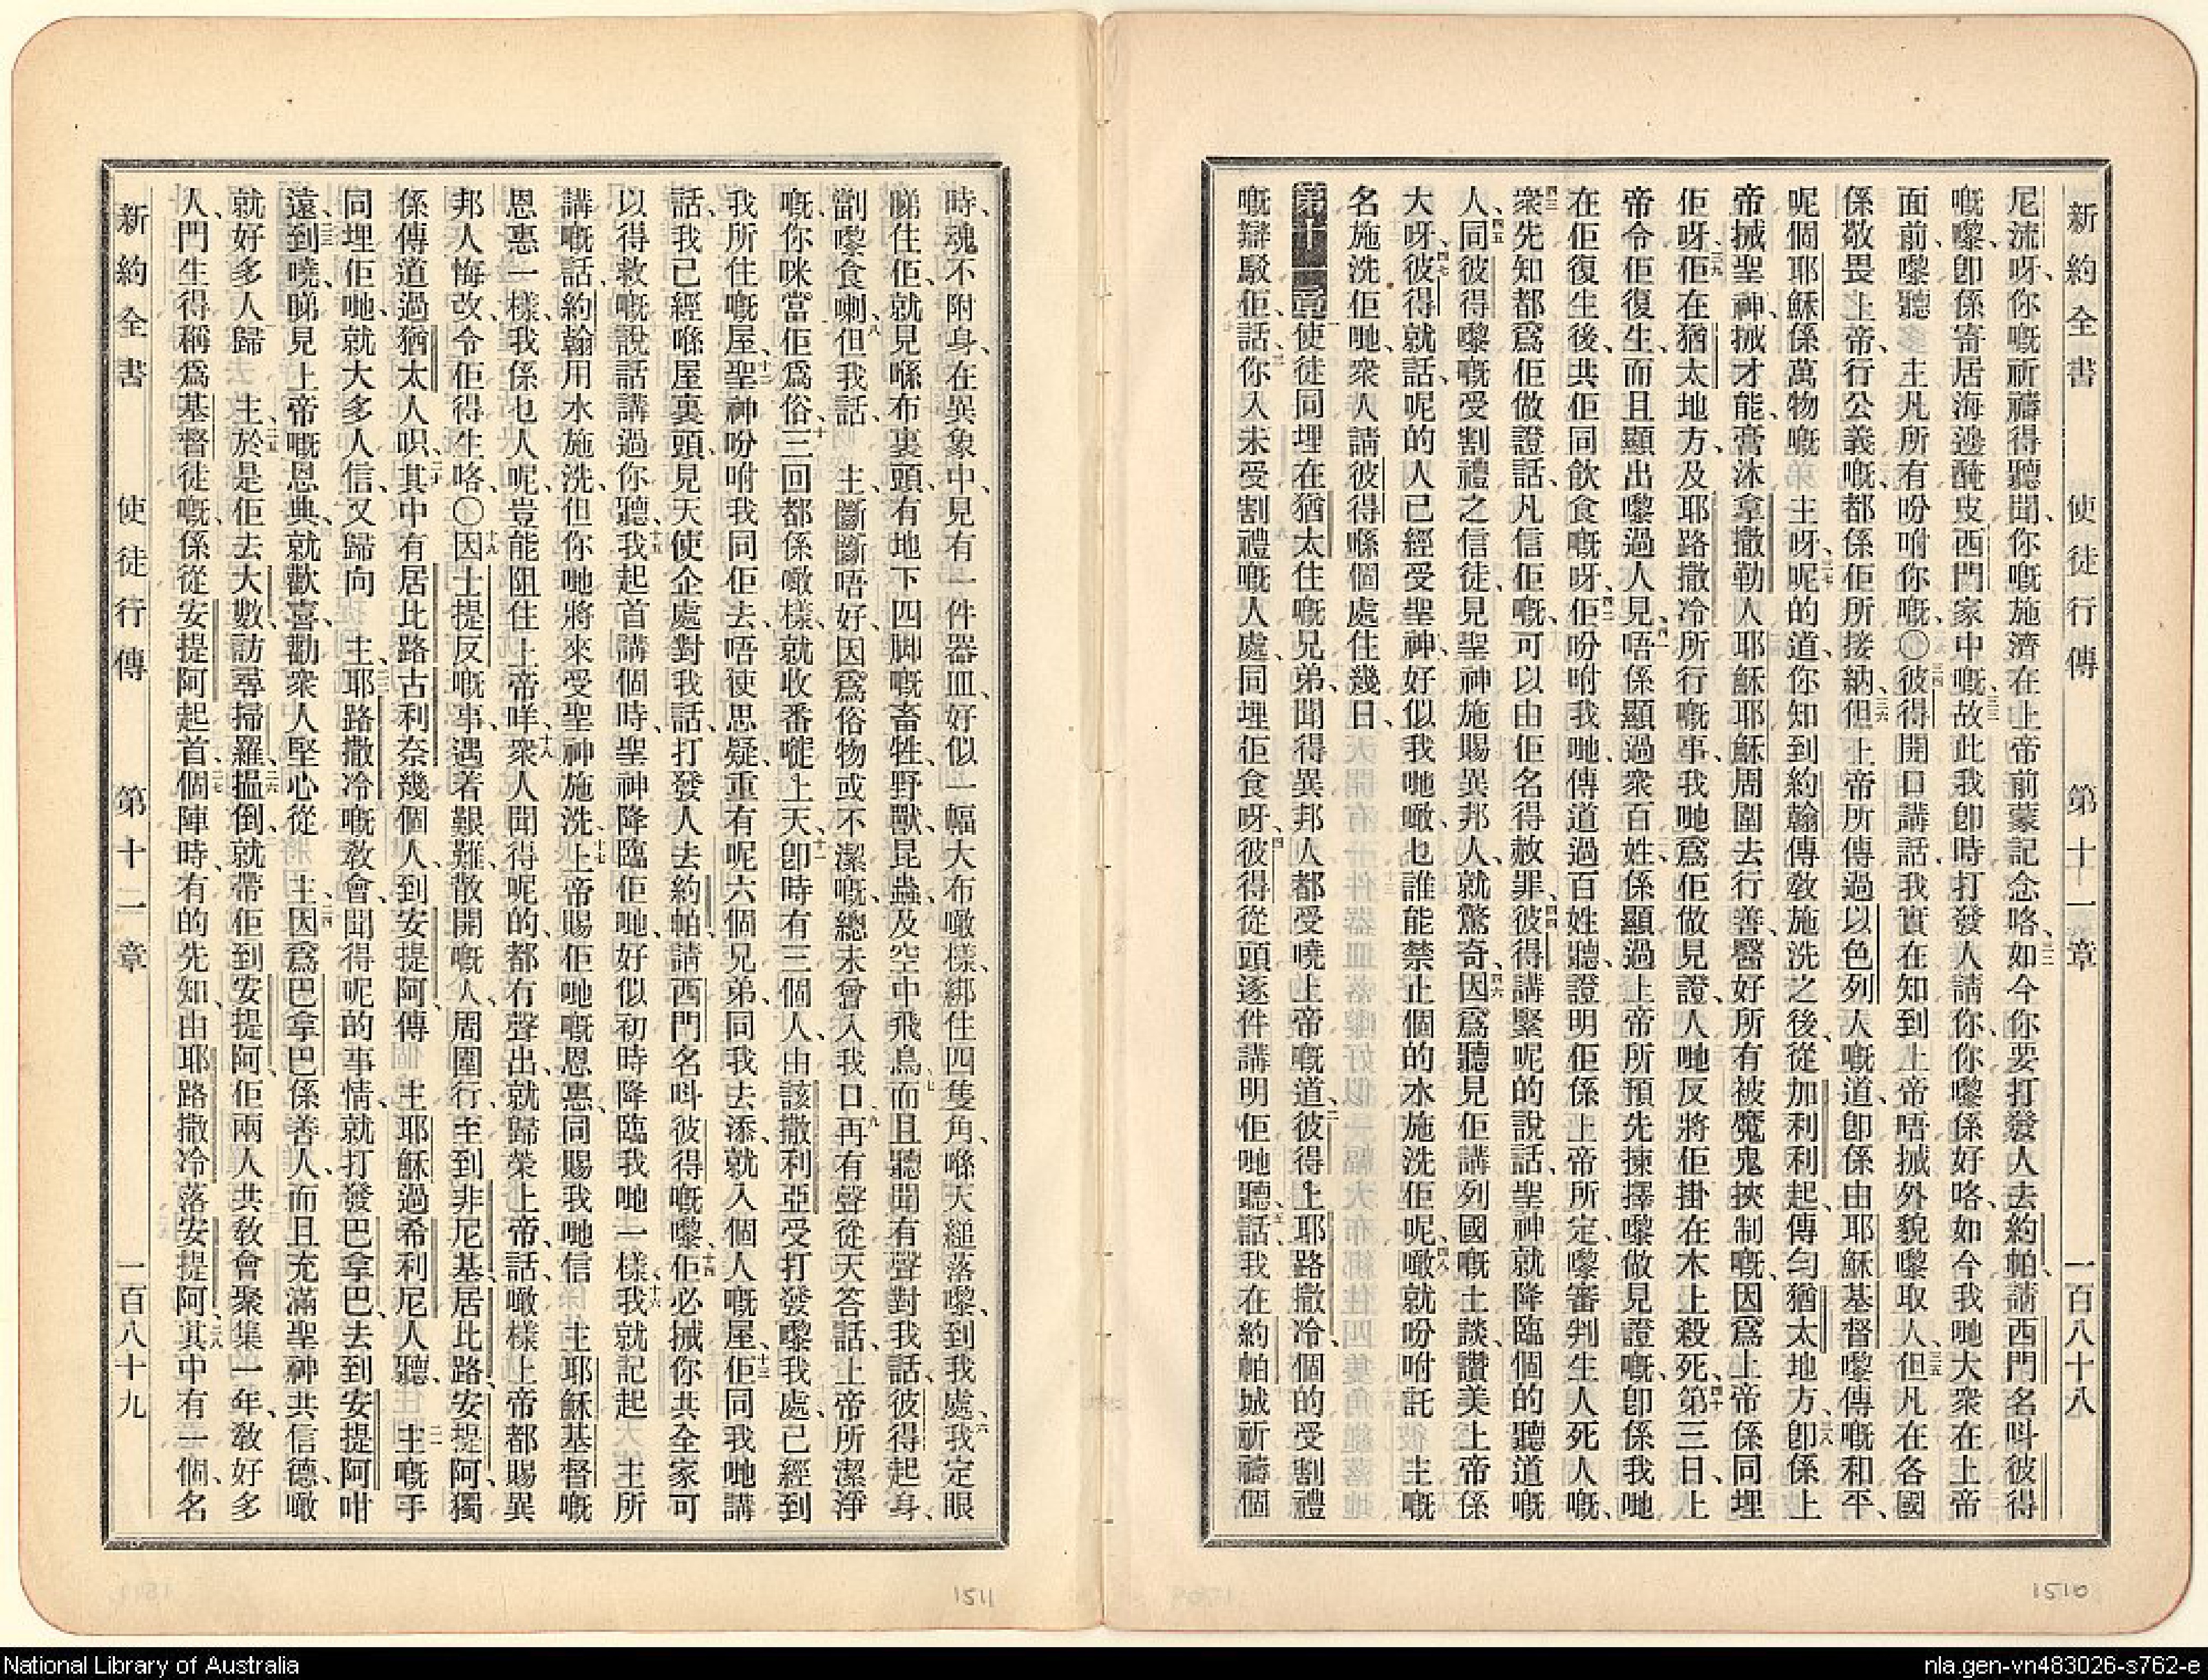 新約全書 使徒行傳 第十一章 一百八十八
尼流呀、你嘅祈禱得聽聞、你嘅施濟在上帝前蒙記念咯、三二如今你要打發人去約帕、請西門名呌彼得
嘅嚟、卽係寄居海邊醃皮西門家中嘅、三三故此我卽時打發人請你、你嚟係好咯、如今我哋大衆在上帝
面前、嚟聽 主凡所有吩咐你嘅、〇三四彼得開口講話、我實在知到上帝唔搣外貌嚟取人、三五但凡在各國
係敬畏上帝、行公義嘅、都係佢所接納、三六但上帝所傳過以色列人嘅道、卽係由耶穌基督嚟傳嘅和平、
呢個耶穌係萬物嘅 主呀、三七呢的道、你知到約翰傳敎施洗之後、從加利利起、傳勻猶太地方、三八卽係上
帝搣聖神、搣才能、膏沐拿撒勒人耶穌、耶穌周圍去行善、醫好所有被魔鬼挾制嘅、因爲上帝係同埋
佢呀、三九佢在猶太地方、及耶路撒冷所行嘅事、我哋爲佢做見證、人哋反將佢掛在木上殺死、四十第三日、上
帝令佢復生、而且顯出嚟過人見、四一唔係顯過衆百姓、係顯過上帝所預先揀擇嚟做見證嘅、卽係我哋
在佢復生後、共佢同飲食嘅呀、四二佢吩咐我哋、傳道過百姓聽、證明佢係上帝所定、嚟審判生人死人嘅、
四三衆先知都爲佢做證話、凡信佢嘅、可以由佢名得赦罪、四四彼得講緊呢的說話、聖神就降臨個的聽道嘅
人、四五同彼得嚟嘅受割禮之信徒、見聖神施賜異邦人、就驚奇、四六因爲聽見佢講列國嘅土談、讚美上帝係
大呀、四七彼得就話、呢的人已經受聖神、好似我哋噉、乜誰能禁止個的水施洗佢呢、四八噉就吩咐託 主嘅
名施洗佢哋、衆人請彼得喺個處住幾日、
第十一章 一使徒同埋在猶太住嘅兄弟、聞得異邦人都受曉上帝嘅道、二彼得上耶路撒冷、個的受割禮
嘅辯駁佢話、三你入未受割禮嘅人處、同埋佢食呀、四彼得從頭逐件講明佢哋聽、話、五我在約帕城祈禱個
1510
時、魂不附身、在異象中、見有一件器皿、好似一幅大布噉樣、綁住四隻角、喺天縋落嚟、到我處、六我定眼
睇住佢、就見喺布裏頭、有地下四脚嘅畜牲、野獸、昆蟲、及空中飛鳥、七而且聽聞有聲對我話、彼得起身、
劏嚟食喇、八但我話 主、斷斷唔好、因爲俗物或不潔嘅、總未曾入我口、九再有聲從天答話、上帝所潔淨
嘅、你咪當佢爲俗、十三回都係噉樣、就收番嘥上天、十一卽時有三個人、由該撒利亞受打發嚟我處、已經到
我所住嘅屋、十二聖神吩咐我同佢去、唔使思疑、重有呢六個兄弟、同我去添、就入個人嘅屋、十三佢同我哋講
話、我已經喺屋裏頭、見天使企處對我話、打發人去約帕、請西門名呌彼得嘅嚟、十四佢必搣你共全家可
以得救嘅說話講過你聽、十五我起首講個時、聖神降臨佢哋、好似初時降臨我哋一樣、十六我就記起 主所
講嘅話、約翰用水施洗、但你哋將來受聖神施洗、十七上帝賜佢哋嘅恩惠、同賜我哋信 主耶穌基督嘅
恩惠一樣、我係乜人呢、豈能阻住上帝咩、十八衆人聞得呢的、都冇聲出、就歸榮上帝、話、噉樣上帝都賜異
邦人悔改、令佢得生咯、〇十九因士提反嘅事、遇着艱難散開嘅人、周圍行、至到非尼基、居比路、安提阿、獨
係傳道過猶太人呮、二十其中有居比路、古利奈幾個人、到安提阿、傳 主耶穌過希利尼人聽、二一主嘅手
同埋佢哋、就大多人信、又歸向 主、二二耶路撒冷嘅敎會、聞得呢的事情、就打發巴拿巴、去到安提阿咁
遠、二三到曉、睇見上帝嘅恩典、就歡喜、勸衆人堅心從 主、二四因爲巴拿巴係善人、而且充滿聖神共信德、噉
就好多人歸 主、二五於是佢去大數、訪尋掃羅、二六搵倒、就帶佢到安提阿、佢兩人共敎會聚集一年、敎好多
人、門生得稱爲基督徒嘅、係從安提阿起首、二七個陣時、有的先知、由耶路撒冷落安提阿、二八其中有一個、名
新約全書 使徒行傳 第十一章 一百八十九
1511
National Library of Australia
nla.gen-vn483026-s762-e